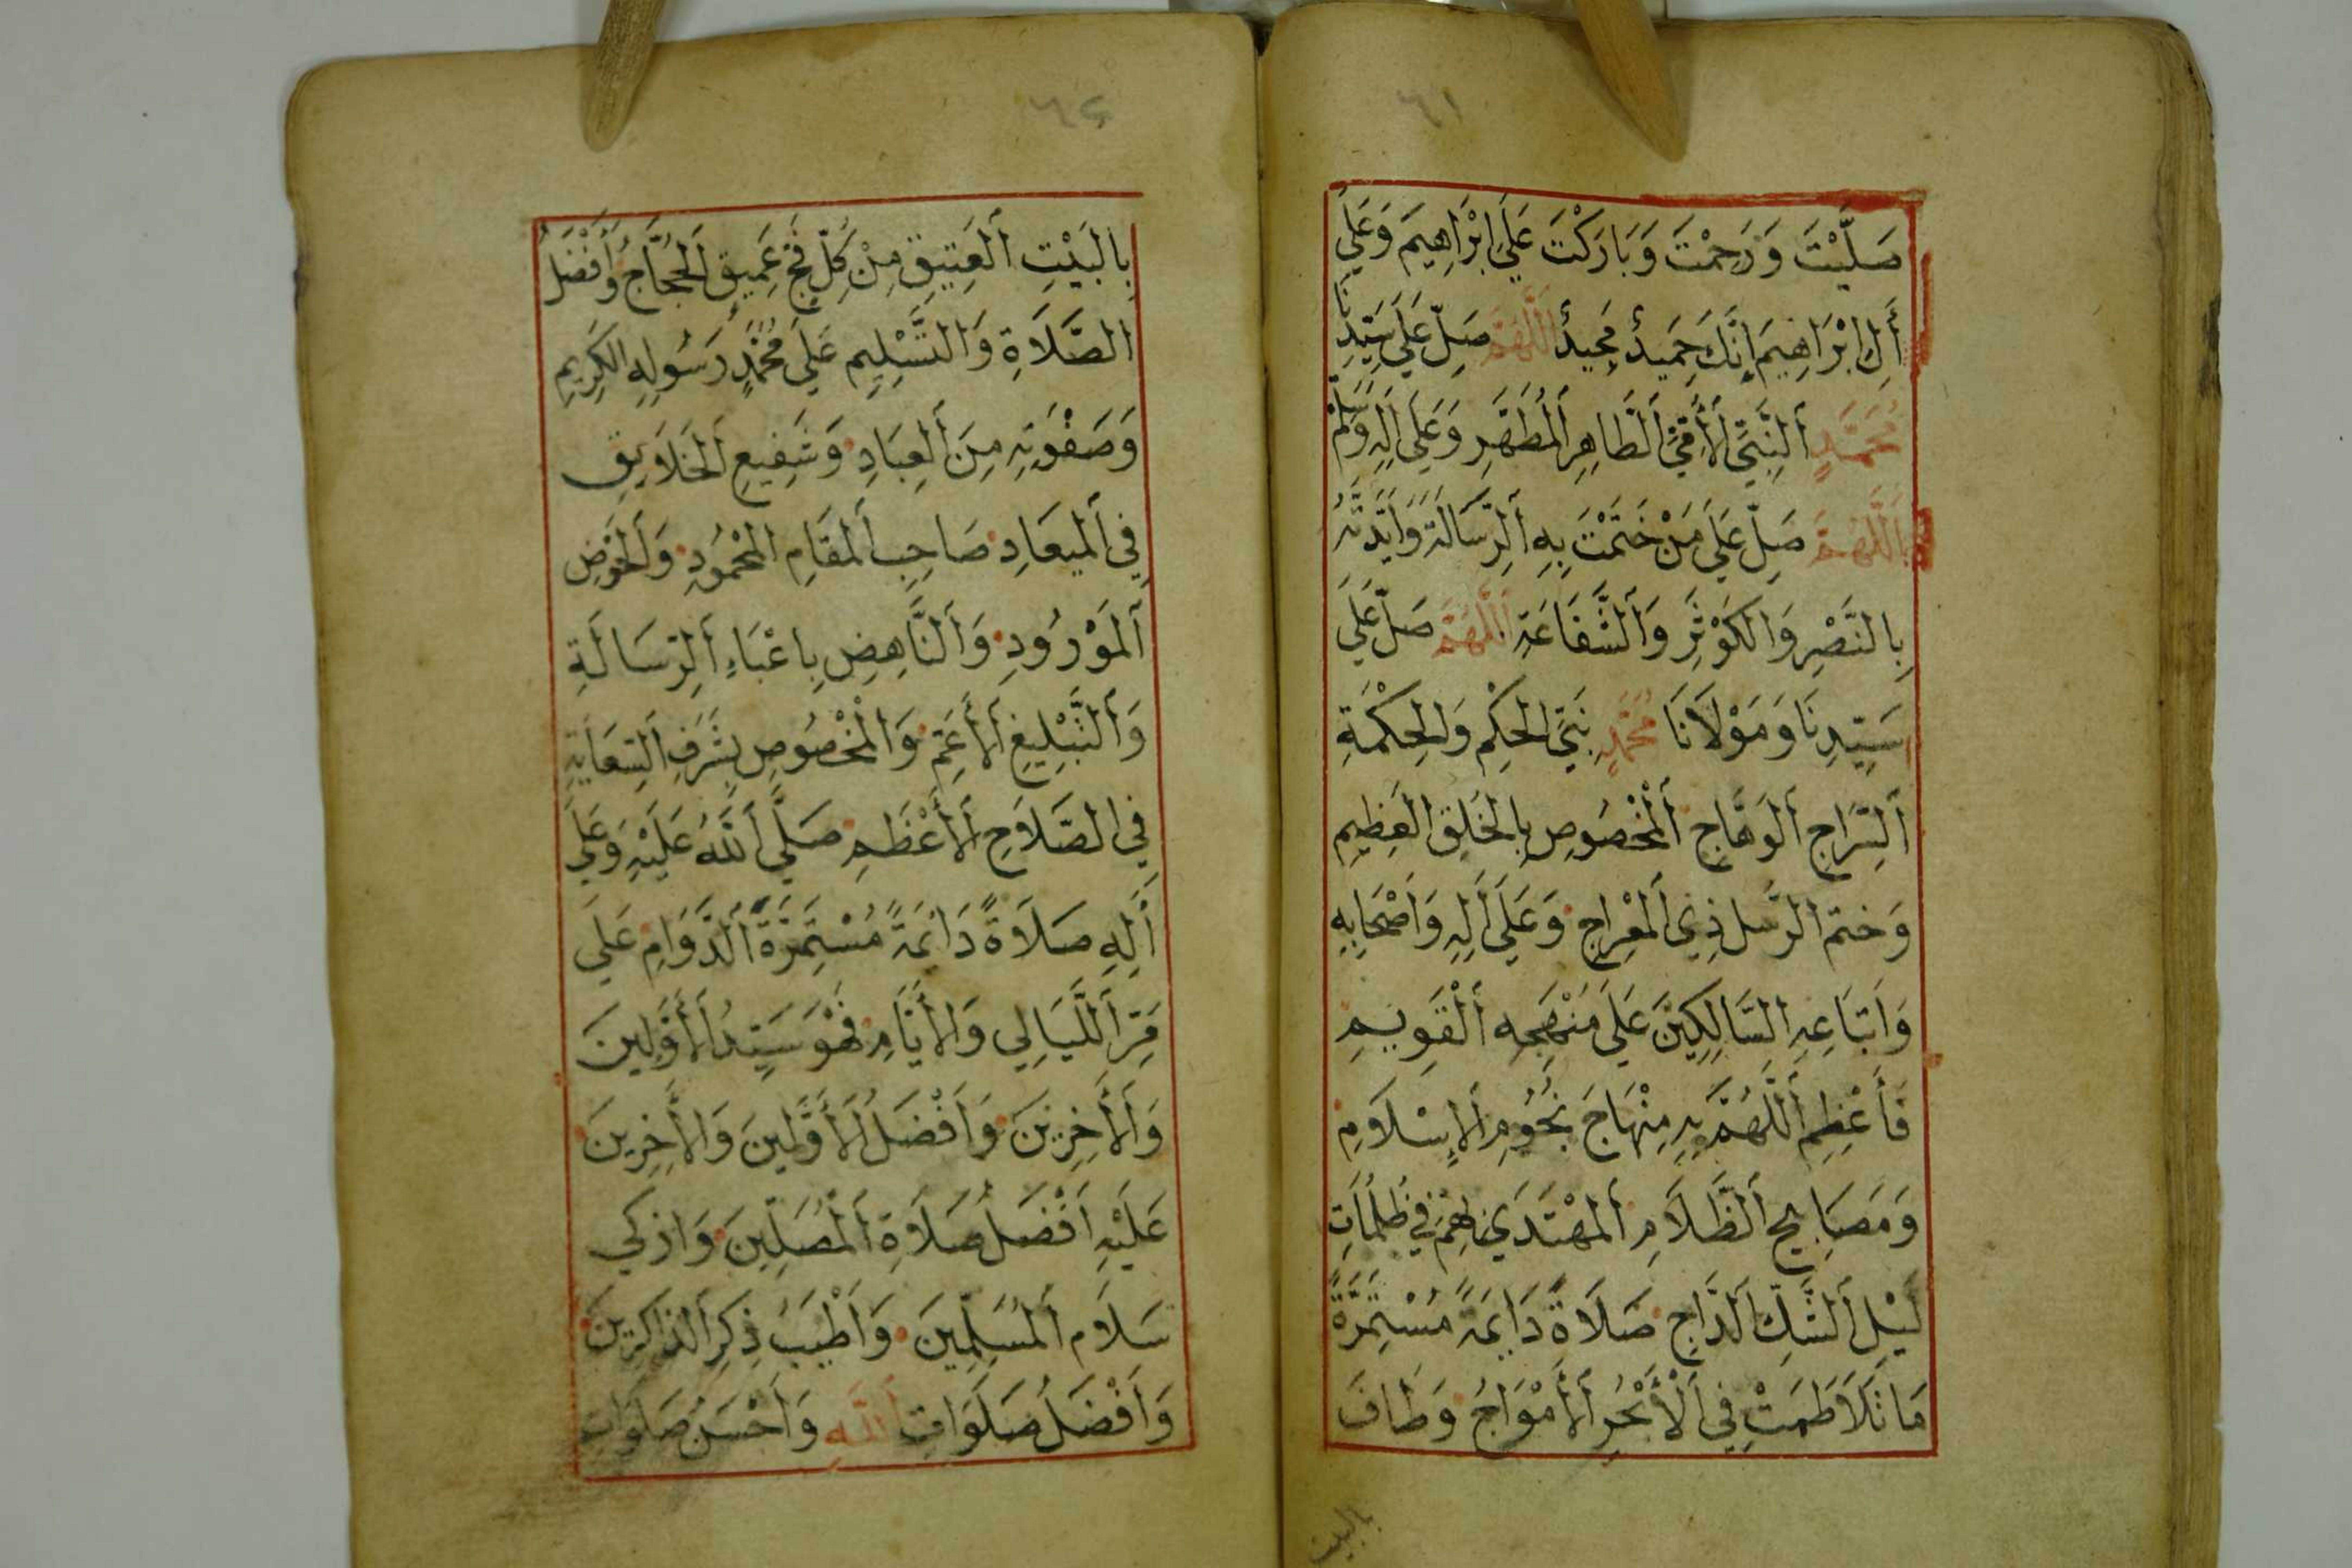 ٦١
صَلَّيْتَ وَرَحِمْتَ وَبَارَكْتَ عَلَى إِبْرَاهِيمَ وَعَلَى
أَلِ إِبْرَاهِيمَ إِنَّكَ حَمِيدٌ مَجِيدٌ اَللَّهُمَّ صَلِّ عَلَى سَيِّدِنَا
مُحَمَّدٍ اَلنَّبِيِّ اَلْأُمِّيِّ اَلطَّاهِرِ اَلْمُطَهَّرِ وَعَلَى اَلِهِ وَسَلِّمْ
اَللَّهُمَّ صَلِّ عَلَى مَنْ خَتَمْتَ بِهِ اَلرِّسَالَةَ وَاَيَّدْتَهُ
بِالنَّصْرِ وَالْكَوْثَرِ وَالشَّفَاعَةِ اَللَّهُمَّ صَلِّ عَلَى
سَيِّدِنَا وَمَوْلَانَا مُحَمَّدٍ نَبِيِّ الْحُكْمِ وَالْحِكْمَةِ
اَلسِّرَاجِ اَلْوَهَّاجِ اَلْمَخْصُوصِ بِالْخُلُقِ الْعَظِيمِ
وَخَتْمِ الرُّسُلِ ذِي اَلْمِعْرَاجِ وَعَلَى اَلِهِ وَاَصْحَابِهِ
وَاَتْبَاعِهِ السَّالِكِينَ عَلَى مَنْهَجِهِ اَلْقَوِيمِ
فَأَعْظِمِ اَللَّهُمَّ بِهِ مِنْهَاجَ نُجُومِ اَلْإِسْلَامِ
وَمَصَابِيحِ اَلظَّلَامِ اَلْمُهْتَدَي بِهِمْ فِي ظُلُمَاتِ
لَيْلِ اَلشَّكِّ اَلدَّاجِ صَلَاةً دَايِمَةً مُسْتَمِرَّةً
مَا تَلَاطَمَتْ فِي اَلْأَبْحُرِ اَلْأَمْوَاجُ وَطَافَ
بالبيت
٦٢
بِالْبَيْتِ اَلْعَتِيقِ مِنْ كُلِّ فَجٍّ عَمِيقٍ اَلْحُجَّاجُ وَأَفْضَلُ
الصَّلَاةِ وَالتَّسْلِيمِ عَلَى مُحَمَّدٍ رَسُولِهِ الْكَرِيمِ
وَصَفْوَتِهِ مِنَ اَلْعِبَادِ وَشَفِيعِ اَلْخَلَايِقِ
فِي اَلْمِيعَادِ صَاحِبِ اَلْمَقَامِ الْمَحْمُودِ وَالْحَوْضِ
اَلْمَوْرُودِ وَالنَّاهِضِ بِاَعْبَاءِ اَلرِّسَالَةِ
وَالتَّبْلِيغِ اَلْأَعَمِّ وَالْمَخْصُوصِ بِشَرَفِ اَلسِّعَايَةِ
فِي الصَّلَاحِ اَلْأَعْظَمِ صَلَّى اَللَّهُ عَلَيْهِ وَعَلَى
أَلِهِ صَلَاةً دَائِمَةً مُسْتَمِرَّةَ اَلدَّوَامِ عَلَى
مَرِّ اَللَّيَالِي وَالْأَيَّامِ فَهُوَ سَيِّدُ اَلْأَوَّلِينَ
وَالْأَخِرِينَ وَاَفْضَلُ اَلْأَوَّلِينَ وَالْأَخِرِينَ
عَلَيْهِ اَفْضَلُ صَلَاةِ اَلْمُصَلِّينَ وَاَزْكَي
سَلَامِ اَلْمُسَلِّمِينَ وَاَطْيَبُ ذِكْرِ اَلذَّاكِرِينَ
وَاَفْضَلُ صَلَوَاتِ اَللَّهِ وَاَحْسَنُ صَلَوَاتِ